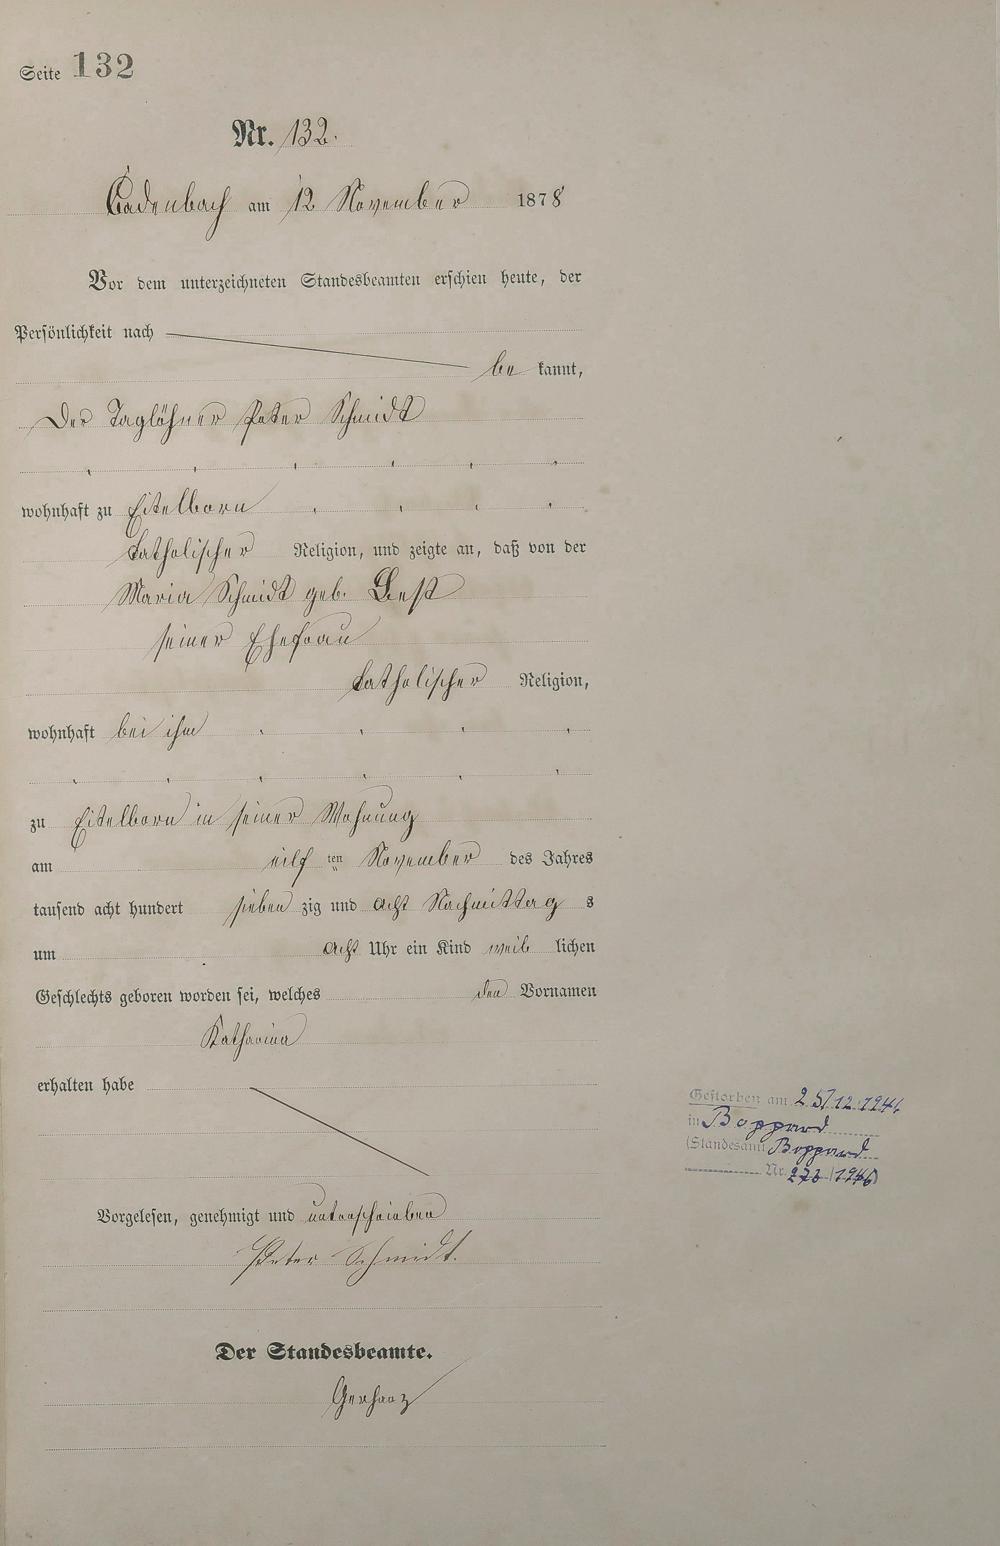 Seite 132
Nr. 132.
Cadenbach am 12 November 1878
Vor dem unterzeichneten Standesbeamten erschien heute, der
Persönlichkeit nach
be kannt,
Der Taglöhner Peter Schmidt
wohnhaft zu Eitelborn
katholischer Religion, und zeigte an, daß von der
Maria Schmidt geb. Best
seiner Ehefrau
katholischer Religion,
wohnhaft bei ihm
zu Eitelborn in seiner Wohnung
am eilf ten November des Jahres
tausend acht hundert sieben zig und acht Nachmittag s
um acht Uhr ein Kind weib lichen
Geschlechts geboren worden sei, welches den Vornamen
Katharina
erhalten habe
Gestorben am 25/12 1946
in Boppard
(Standesamt Boppard
Nr. /1946)
Vorgelesen, genehmigt und unterschrieben
Peter Schmidt.
Der Standesbeamte.
Gerharz